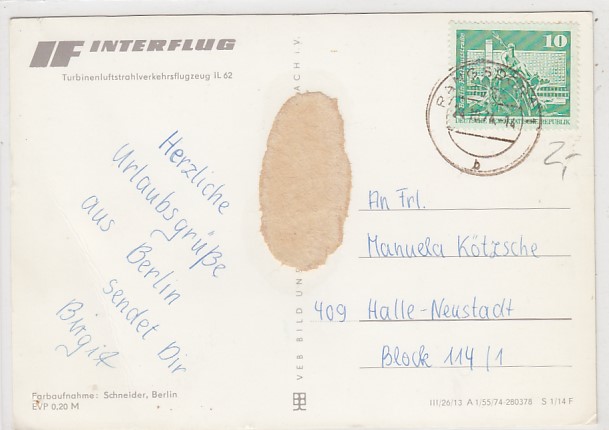 IF INTERFLUG
Turbinenluftstrahlverkehrsflugzeug IL 62
Herzliche
Urlaubsgrüße
aus Berlin
sendet Dir
Birgit
Farbaufnahme: Schneider, Berlin
EVP 0,20 M
VEB BILD UN
ACH I.V.
10
2,-
An Frl.
Manuela Kötzsche
409 Halle-Neustadt
Block 114/1
III/26/13 A 1/55/74-280378 S 1/14 F